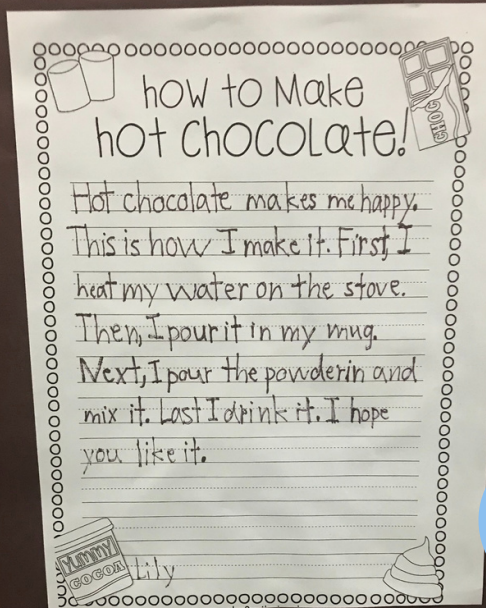 how to Make
hot CHOCOLate!
CHOC
Hot chocolate makes me happy.
This is how I make it. First, I
heat my water on the stove.
Then, I pour it in my mug.
Next, I pour the powder in and
mix it. Last I drink it. I hope
you like it.
YUMMY
COCOA
Lily